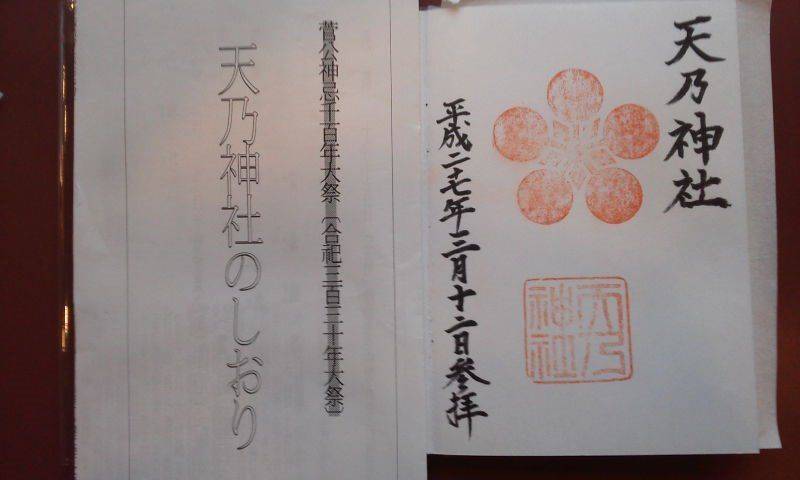 天乃神社
平成二十七年三月十二日参拝
天乃神社
菅公神忌千百年大祭〔合祀三百三十年大祭〕
天乃神社のしおり